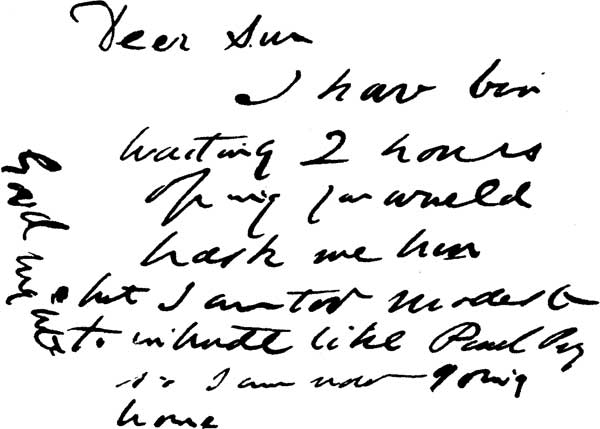 Deer Sur
I hav bin
waiting 2 hours
oping you would
hask me hin
but I am too modest
to intrude like Paul Pry
so I am now going
home